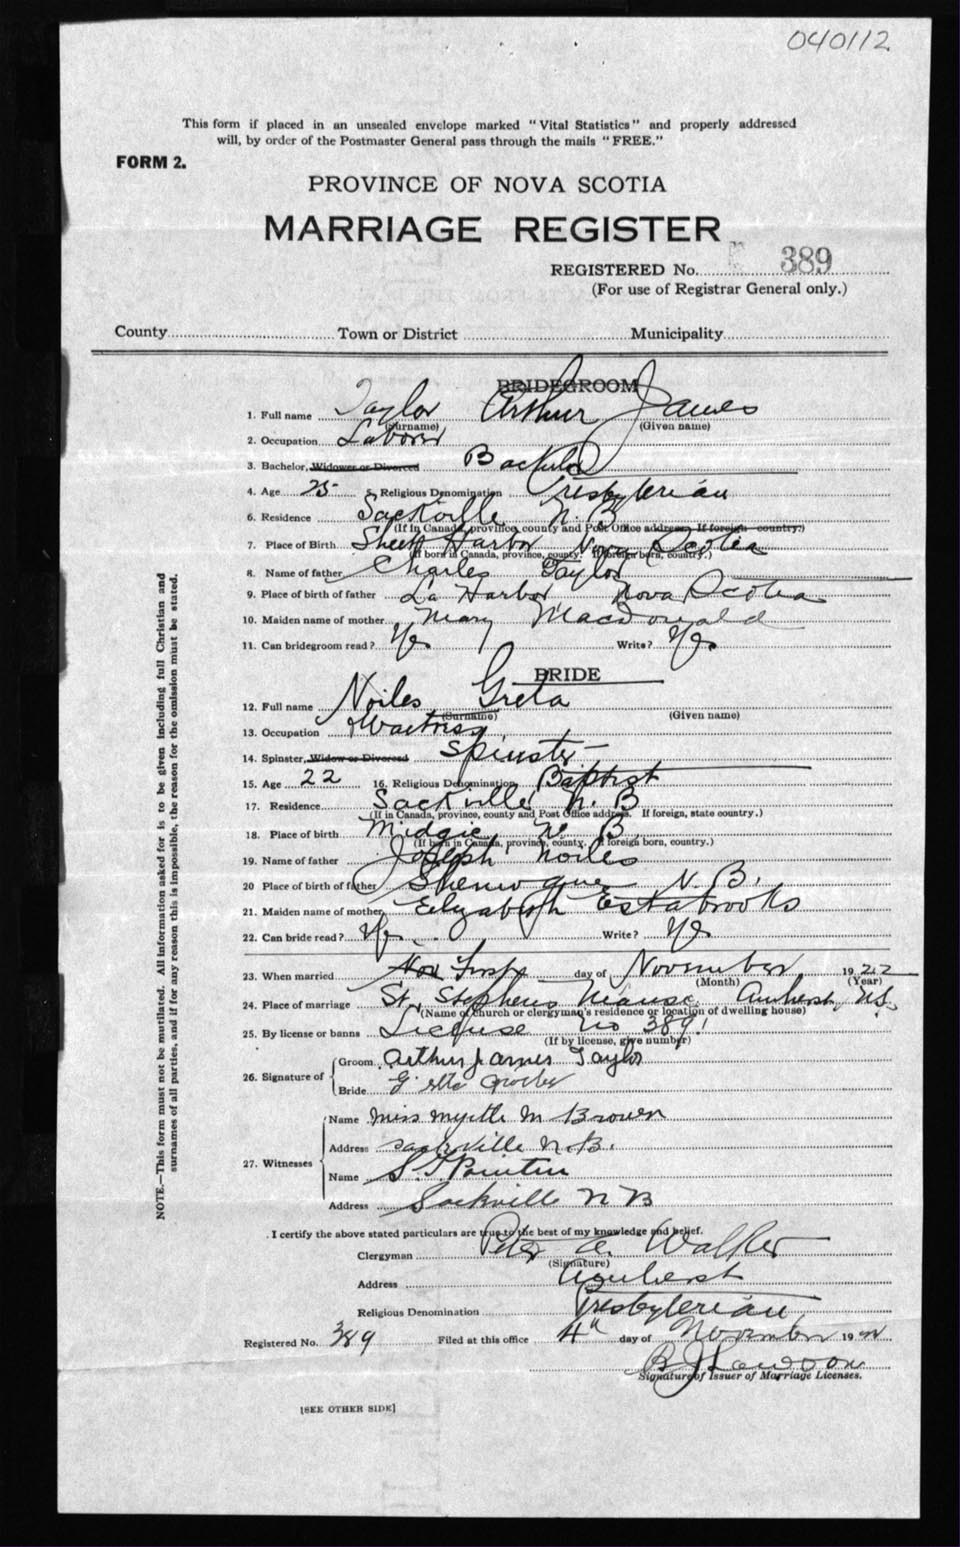 040112
This form if placed in an unsealed envelope marked "Vital Statistics" and properly addressed
will, by order of the Postmaster General pass through the mails "FREE."
FORM 2.
PROVINCE OF NOVA SCOTIA
MARRIAGE REGISTER
REGISTERED No. 389
(For use of Registrar General only.)
County Town or District Municipality
BRIDEGROOM
1. Full name Taylor Arthur James
(Surname) (Given name)
2. Occupation Laborer
3. Bachelor, Widower or Divorced Bachelor
4. Age 25 5. Religious Denomination Presbyterian
6. Residence Sackville N.B.
(If in Canada, province, county and Post Office address. If foreign country.)
7. Place of Birth Sheet Harbor Nova Scotia
(If born in Canada, province, county. If foreign born, country.)
8. Name of father Charles Taylor
9. Place of birth of father Harbor Nova Scotia
10. Maiden name of mother Mary MacDonald
11. Can bridegroom read? Yes Write? Yes
BRIDE
12. Full name Noiles Greta
(Surname) (Given name)
13. Occupation Waitress
14. Spinster, Widow or Divorced Spinster
15. Age 22 16. Religious Denomination Baptist
17. Residence Sackville N. B
(If in Canada, province, county and Post Office address. If foreign, state country.)
18. Place of birth Midgic N. B.
(If born in Canada, province, county. If foreign born, country.)
19. Name of father Joseph Noiles
20 Place of birth of father Shemogue N. B.
21. Maiden name of mother Elizabeth Estabrooks
22. Can bride read? Yes Write? Yes
23. When married First day of November 1922
(Month) (Year)
24. Place of marriage St. Stephens Manse Amherst N.S.
(Name of church or clergyman's residence or location of dwelling house)
25. By license or banns License No 389
(If by license, give number)
26. Signature of Groom Arthur James Taylor
Bride
27. Witnesses Name Miss Myrtle M Brown
Address Sackville N.B.
Name
Address Sackville N B
I certify the above stated particulars are true to the best of my knowledge and belief.
Clergyman Peter Walker
(Signature)
Address Amherst
Religious Denomination Presbyterian
Registered No. 389 Filed at this office 4th day of November 1922
B J Lawson
Signature of Issuer of Marriage Licenses.
[SEE OTHER SIDE]
NOTE.—This form must not be mutilated. All information asked for is to be given including full Christian and
surnames of all parties, and if for any reason this is impossible, the reason for the omission must be stated.